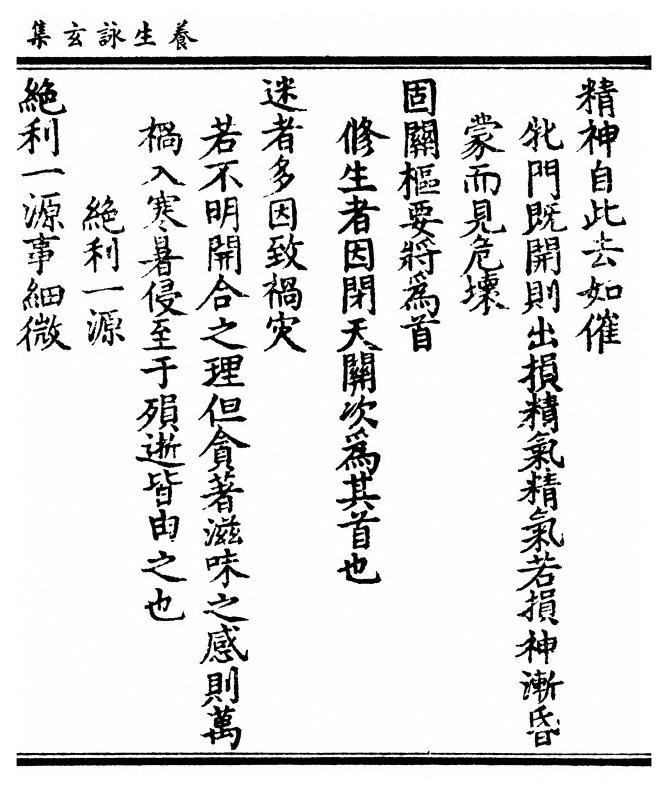 養生詠玄集
精神自此去如催
牝門既開則出損精氣精氣若損神漸昏
蒙而見危壞
固關樞要將爲首
修生者因閉天關次爲其首也
迷者多因致禍灾
若不明開合之理但貪著滋味之感則萬
禍入寒暑侵至于殞逝皆由之也
絶利一源
絶利一源事細微